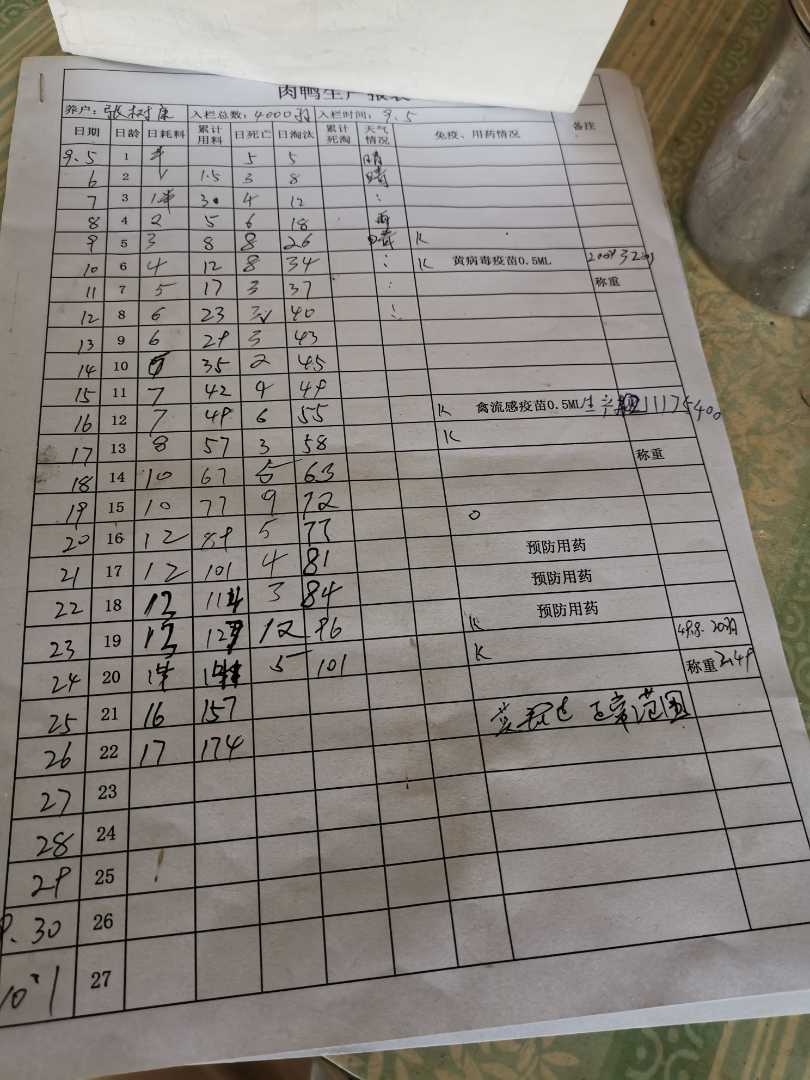 肉鸭生产报表
养户：张树康 入栏总数：4000羽 入栏时间：9.5
日期 日龄 日耗料 累计用料 日死亡 日淘汰 累计死淘 天气情况 免疫、用药情况 备注
9.5 1 半 5 5 晴
6 2 1 1.5 3 8 晴
7 3 3 4 12
8 4 2 5 6 18 雨
9 5 3 8 8 26 晴 K
10 6 4 12 8 34 K 黄病毒疫苗0.5ML
11 7 5 17 3 37 称重
12 8 6 23 3 40
13 9 6 29 3 43
14 10 6 35 2 45
15 11 7 42 4 49
16 12 7 49 6 55 K 禽流感疫苗0.5ML
17 13 8 57 3 58 K
18 14 10 67 5 63 称重
19 15 10 77 9 72
20 16 12 89 5 77
21 17 12 101 4 81 预防用药
22 18 12 114 3 84 预防用药
23 19 12 127 12 96 K 预防用药
24 20 5 101 K 称重
25 21 16 157 正常范围
26 22 17 174
27 23
28 24
29 25
9.30 26
10.1 27